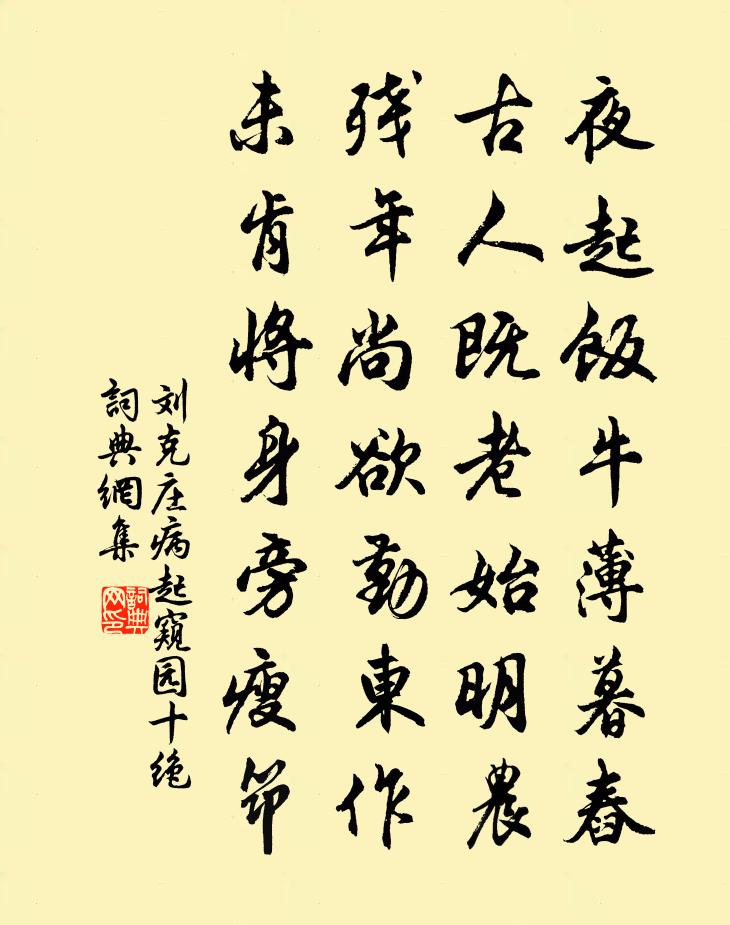 夜起飯牛薄暮舂
古人既老始明農
残年尚欲勤東作
未肯將身旁瘦筇
刘克庄病起窺园十绝
詞典網集
詞典
网印